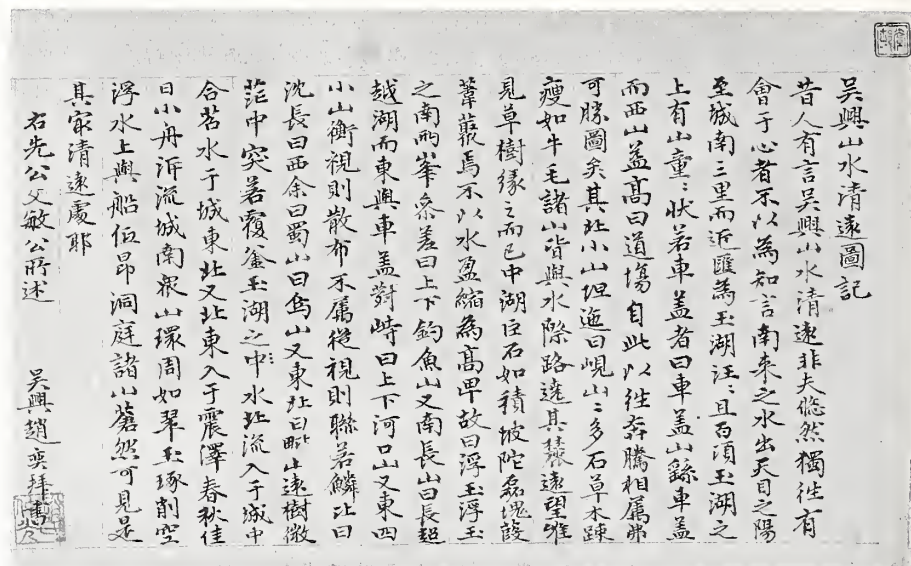 吳興山水清遠圖記
昔人有言吳興山水清遠非夫悠然獨往有
會于心者不以為知言南來之水出天目之陽
至城南三里而近匯為玉湖汪〻且百頃玉湖之
上有山童〻狀若車蓋者曰車蓋山繇車蓋
而西山益高曰道場自此以往奔騰相属弗
可勝圖矣其北小山坦迤曰峴山〻多石草木疎
瘦如牛毛諸山皆與水際路遶其麓遠望唯
見草樹緣之而已中湖巨石如積坡陀磊磈葭
葦藂焉不以水盈縮為高卑故曰浮玉浮玉
之南兩峯參差曰上下釣魚山又南長山曰長超
越湖而東與車蓋對峙曰上下河口山又東四
小山衡視則散布不属從視則聯若鱗比曰
沈長曰西余曰蜀山曰烏山又東北曰毗山遠樹微
茫中突若覆釜玉湖之中水北流入于城中
合苕水于城東北又北東入于震澤春秋佳
日小舟泝流城南眾山環周如翠玉琢削空
浮水上與船低昂洞庭諸山蒼然可見是
其最清遠處耶
右先公文敏公所述 吳興趙奕拜書